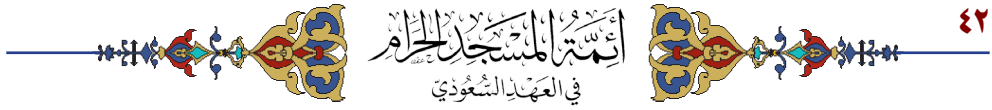 ٤٢
أئمة المسجد الحرام
في العهد السعودي